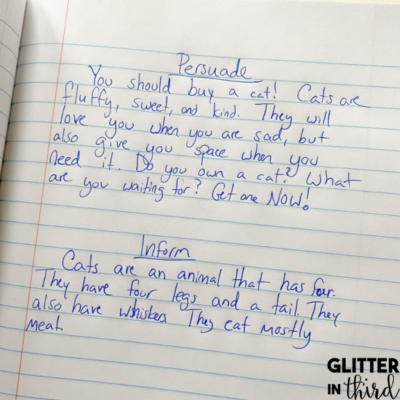 Persuade
You should buy a cat! Cats are
fluffy, sweet, and kind. They will
love you when you are sad, but
also give you space when you
need it. Do you own a cat? What
are you waiting for? Get one NOW!
Inform
Cats are an animal that has fur.
They have four legs and a tail. They
also have whiskers. They eat mostly
meat.
GLITTER
IN third